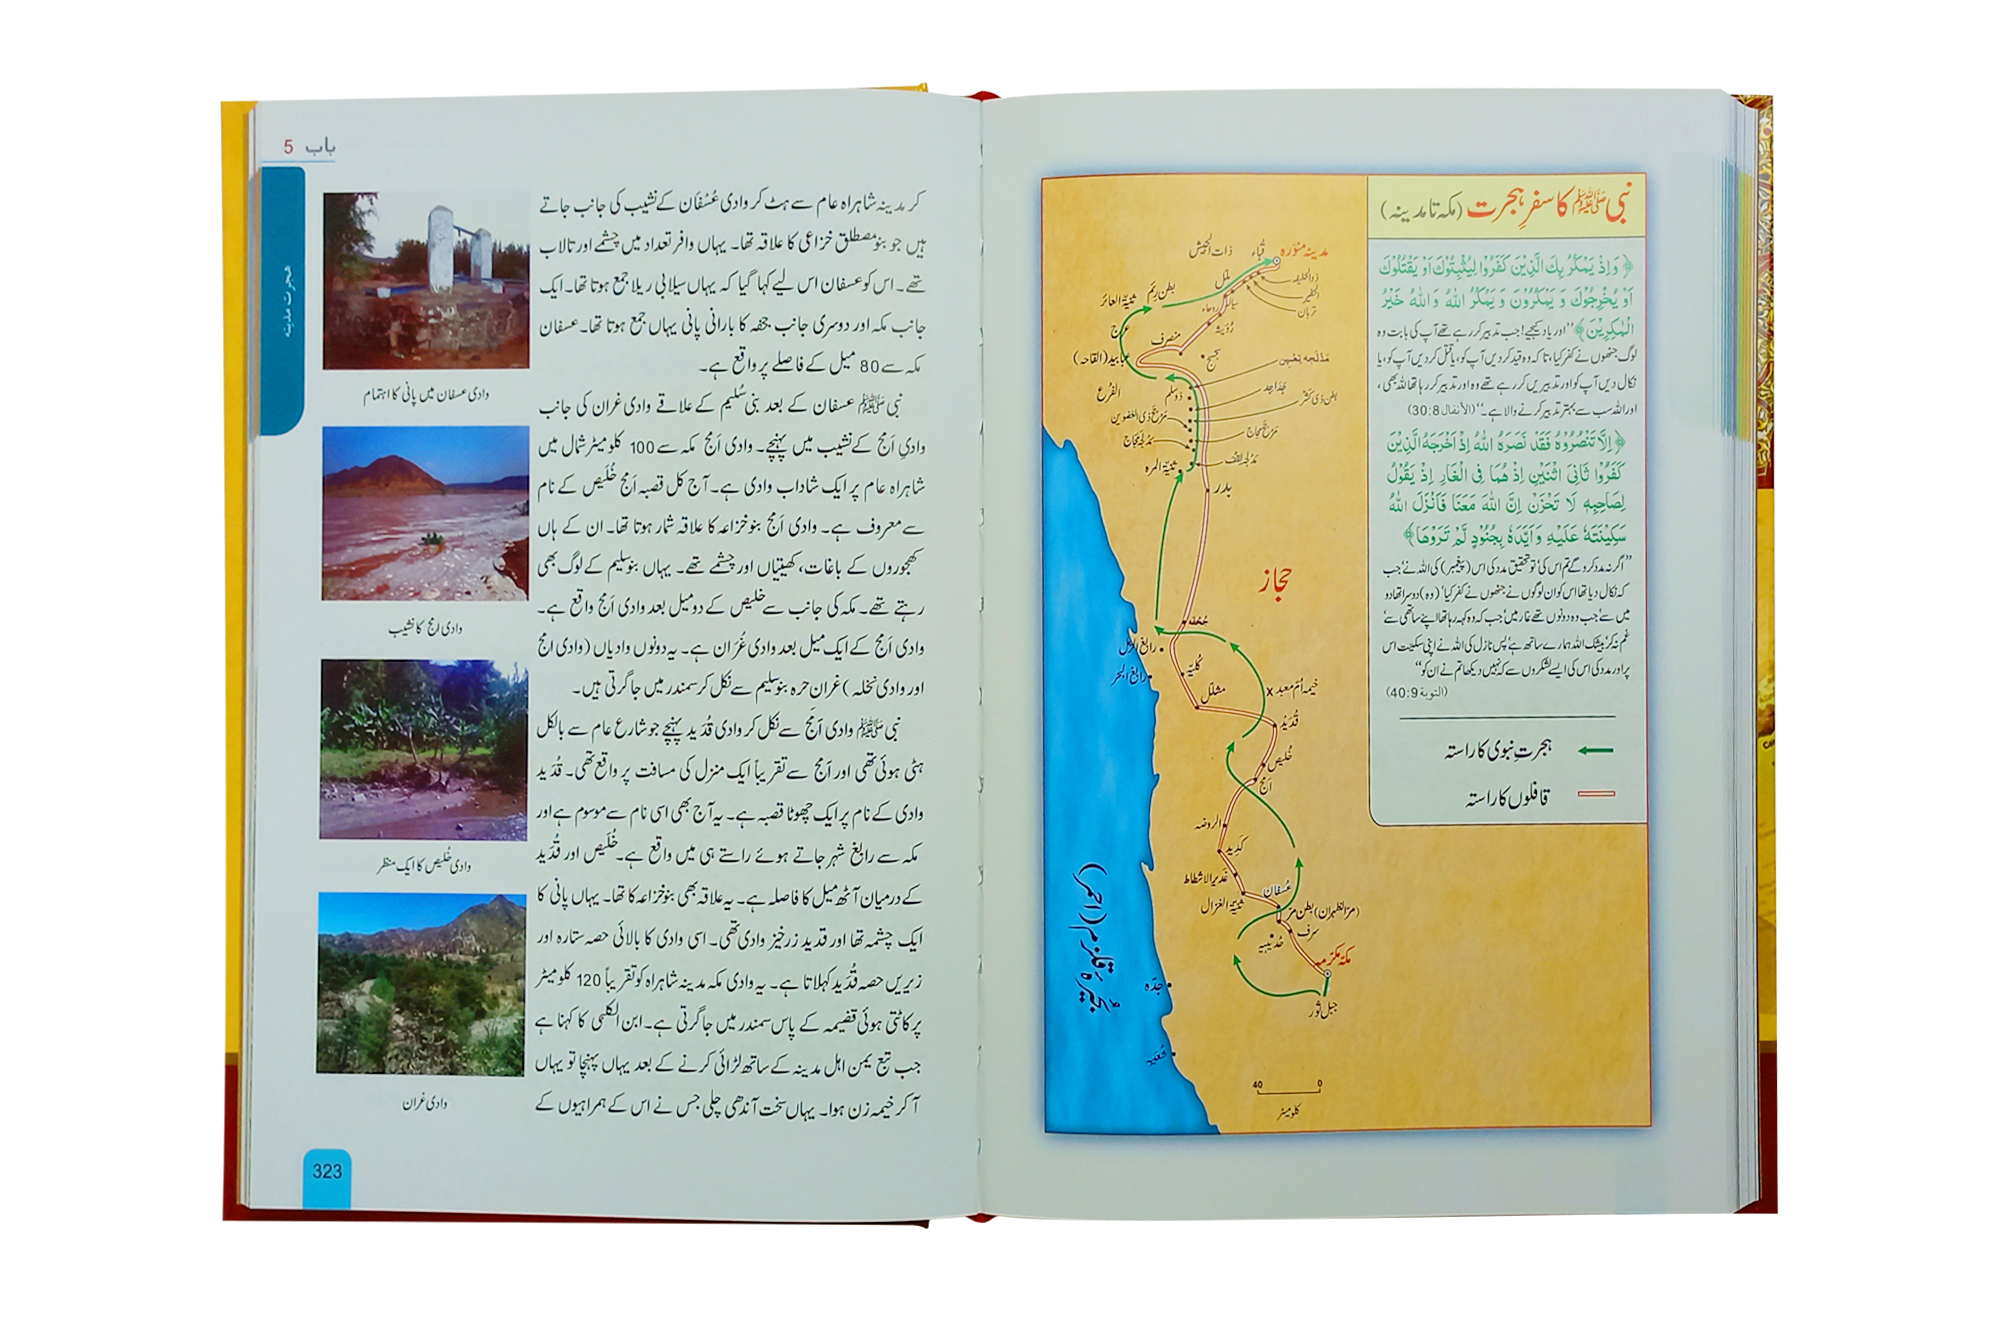 نبی ﷺ کا سفرِ ہجرت (مکہ تا مدینہ)
﴿ وَاِذْ يَمْكُرُ بِكَ الَّذِيْنَ كَفَرُوْا لِيُثْبِتُوْكَ اَوْ يَقْتُلُوْكَ
اَوْ يُخْرِجُوْكَ وَ يَمْكُرُوْنَ وَ يَمْكُرُ اللهُ وَ اللهُ خَيْرُ
الْمٰكِرِيْنَ﴾ ”اور یاد کیجیے! جب تدبیر کر رہے تھے آپ کی بابت وہ
لوگ جنھوں نے کفر کیا، تاکہ وہ قید کر دیں آپ کو، یا قتل کر دیں آپ کو، یا
نکال دیں آپ کو اور تدبیریں کر رہے تھے وہ اور تدبیر کر رہا تھا اللہ بھی،
اور اللہ سب سے بہتر تدبیر کرنے والا ہے۔“ (الأنفال 30:8)
﴿ اِلَّا تَنْصُرُوْهُ فَقَدْ نَصَرَهُ اللهُ اِذْ اَخْرَجَهُ الَّذِيْنَ
كَفَرُوْا ثَانِيَ اثْنَيْنِ اِذْ هُمَا فِي الْغَارِ اِذْ يَقُوْلُ
لِصَاحِبِهٖ لَا تَحْزَنْ اِنَّ اللهَ مَعَنَا فَاَنْزَلَ اللهُ
سَكِيْنَتَهٗ عَلَيْهِ وَ اَيَّدَهٗ بِجُنُوْدٍ لَّمْ تَرَوْهَا﴾
”اگر نہ مدد کرو گے تم اس کی تو تحقیق مدد کی اس (پیغمبر) کی اللہ نے جب
کہ نکال دیا تھا اس کو ان لوگوں نے جنھوں نے کفر کیا، (وہ) دوسرا تھا دو
میں سے، جب وہ دونوں تھے غار میں، جب کہ وہ کہہ رہا تھا اپنے ساتھی سے
غم نہ کر بیشک اللہ ہمارے ساتھ ہے، پس نازل کی اللہ نے اپنی سکینت اس
پر اور مدد کی اس کی ایسے لشکروں سے کہ نہیں دیکھا تم نے ان کو“
(التوبة 40:9)
ہجرتِ نبوی کا راستہ
قافلوں کا راستہ
مدینہ منوّرہ
قُباء
ذات الجیش
ذوالحلیفہ
ملل
تربان
بطن رئم
ثنیۃ العائر
روحاء
رُوَیثہ
عرج
منصرف
عبابید (القاحہ)
الفرع
ذوسلم
مَرْجَحْ ذی العضوین
مَرجَحْ مَجاج
ثنیۃ المرہ
بدر
حجاز
جُحفہ
رابغ البحر
کُلیّہ
مشلّل
خیمہ اُمّ معبد x
قُدَید
خُلیص
اَمَج
الروضہ
کَدِید
غدیر الاشطاط
عُسفان
ثنیّۃ الغزال
(مرّ الظہران) بطن مرّ
سرف
حُدیبیہ
مکّہ مکرّمہ
جبل ثور
بُحَیرۂ قلزم (احمر)
جدّہ
40 0
کلومیٹر
باب 5
ہجرت مدینہ
کر مدینہ شاہراہ عام سے ہٹ کر وادی عُسْفَان کے نشیب کی جانب جاتے
ہیں جو بنو مصطلق خزاعی کا علاقہ تھا۔ یہاں وافر تعداد میں چشمے اور تالاب
تھے۔ اس کو عسفان اس لیے کہا گیا کہ یہاں سیلابی ریلا جمع ہوتا تھا۔ ایک
جانب مکہ اور دوسری جانب جحفہ کا بارانی پانی یہاں جمع ہوتا تھا۔ عسفان
مکہ سے 80 میل کے فاصلے پر واقع ہے۔
نبی ﷺ عسفان کے بعد بنی سُلیم کے علاقے وادی غران کی جانب
وادیِ اَمَج کے نشیب میں پہنچے۔ وادی اَمَج مکہ سے 100 کلومیٹر شمال میں
شاہراہ عام پر ایک شاداب وادی ہے۔ آج کل قصبہ اَمَج خُلَیص کے نام
سے معروف ہے۔ وادی اَمَج بنو خزاعہ کا علاقہ شمار ہوتا تھا۔ ان کے ہاں
کھجوروں کے باغات، کھیتیاں اور چشمے تھے۔ یہاں بنو سلیم کے لوگ بھی
رہتے تھے۔ مکہ کی جانب سے خلیص کے دو میل بعد وادی اَمَج واقع ہے۔
وادی اَمَج کے ایک میل بعد وادی غُرَان ہے۔ یہ دونوں وادیاں (وادی امج
اور وادی نخلہ) غران حرہ بنو سلیم سے نکل کر سمندر میں جا گرتی ہیں۔
نبی ﷺ وادی اَمَج سے نکل کر وادی قُدَید پہنچے جو شارع عام سے بالکل
ہٹی ہوئی تھی اور اَمَج سے تقریباً ایک منزل کی مسافت پر واقع تھی۔ قُدَید
وادی کے نام پر ایک چھوٹا قصبہ ہے۔ یہ آج بھی اسی نام سے موسوم ہے اور
مکہ سے رابغ شہر جاتے ہوئے راستے ہی میں واقع ہے۔ خُلَیص اور قُدَید
کے درمیان آٹھ میل کا فاصلہ ہے۔ یہ علاقہ بھی بنو خزاعہ کا تھا۔ یہاں پانی کا
ایک چشمہ تھا اور قدید زرخیز وادی تھی۔ اسی وادی کا بالائی حصہ ستارہ اور
زیریں حصہ قُدَید کہلاتا ہے۔ یہ وادی مکہ مدینہ شاہراہ کو تقریباً 120 کلومیٹر
پر کاٹتی ہوئی قضیمہ کے پاس سمندر میں جا گرتی ہے۔ ابن الکلبی کا کہنا ہے
جب تبع یمن اہل مدینہ کے ساتھ لڑائی کرنے کے بعد یہاں پہنچا تو یہاں
آ کر خیمہ زن ہوا۔ یہاں سخت آندھی چلی جس نے اس کے ہمراہیوں کے
وادی عسفان میں پانی کا اہتمام
وادی امج کا نشیب
وادی خُلیص کا ایک منظر
وادی غران
323